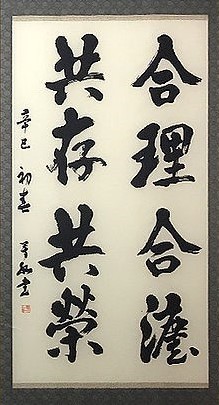 合理合灋
共存共榮
辛巳 初春 書